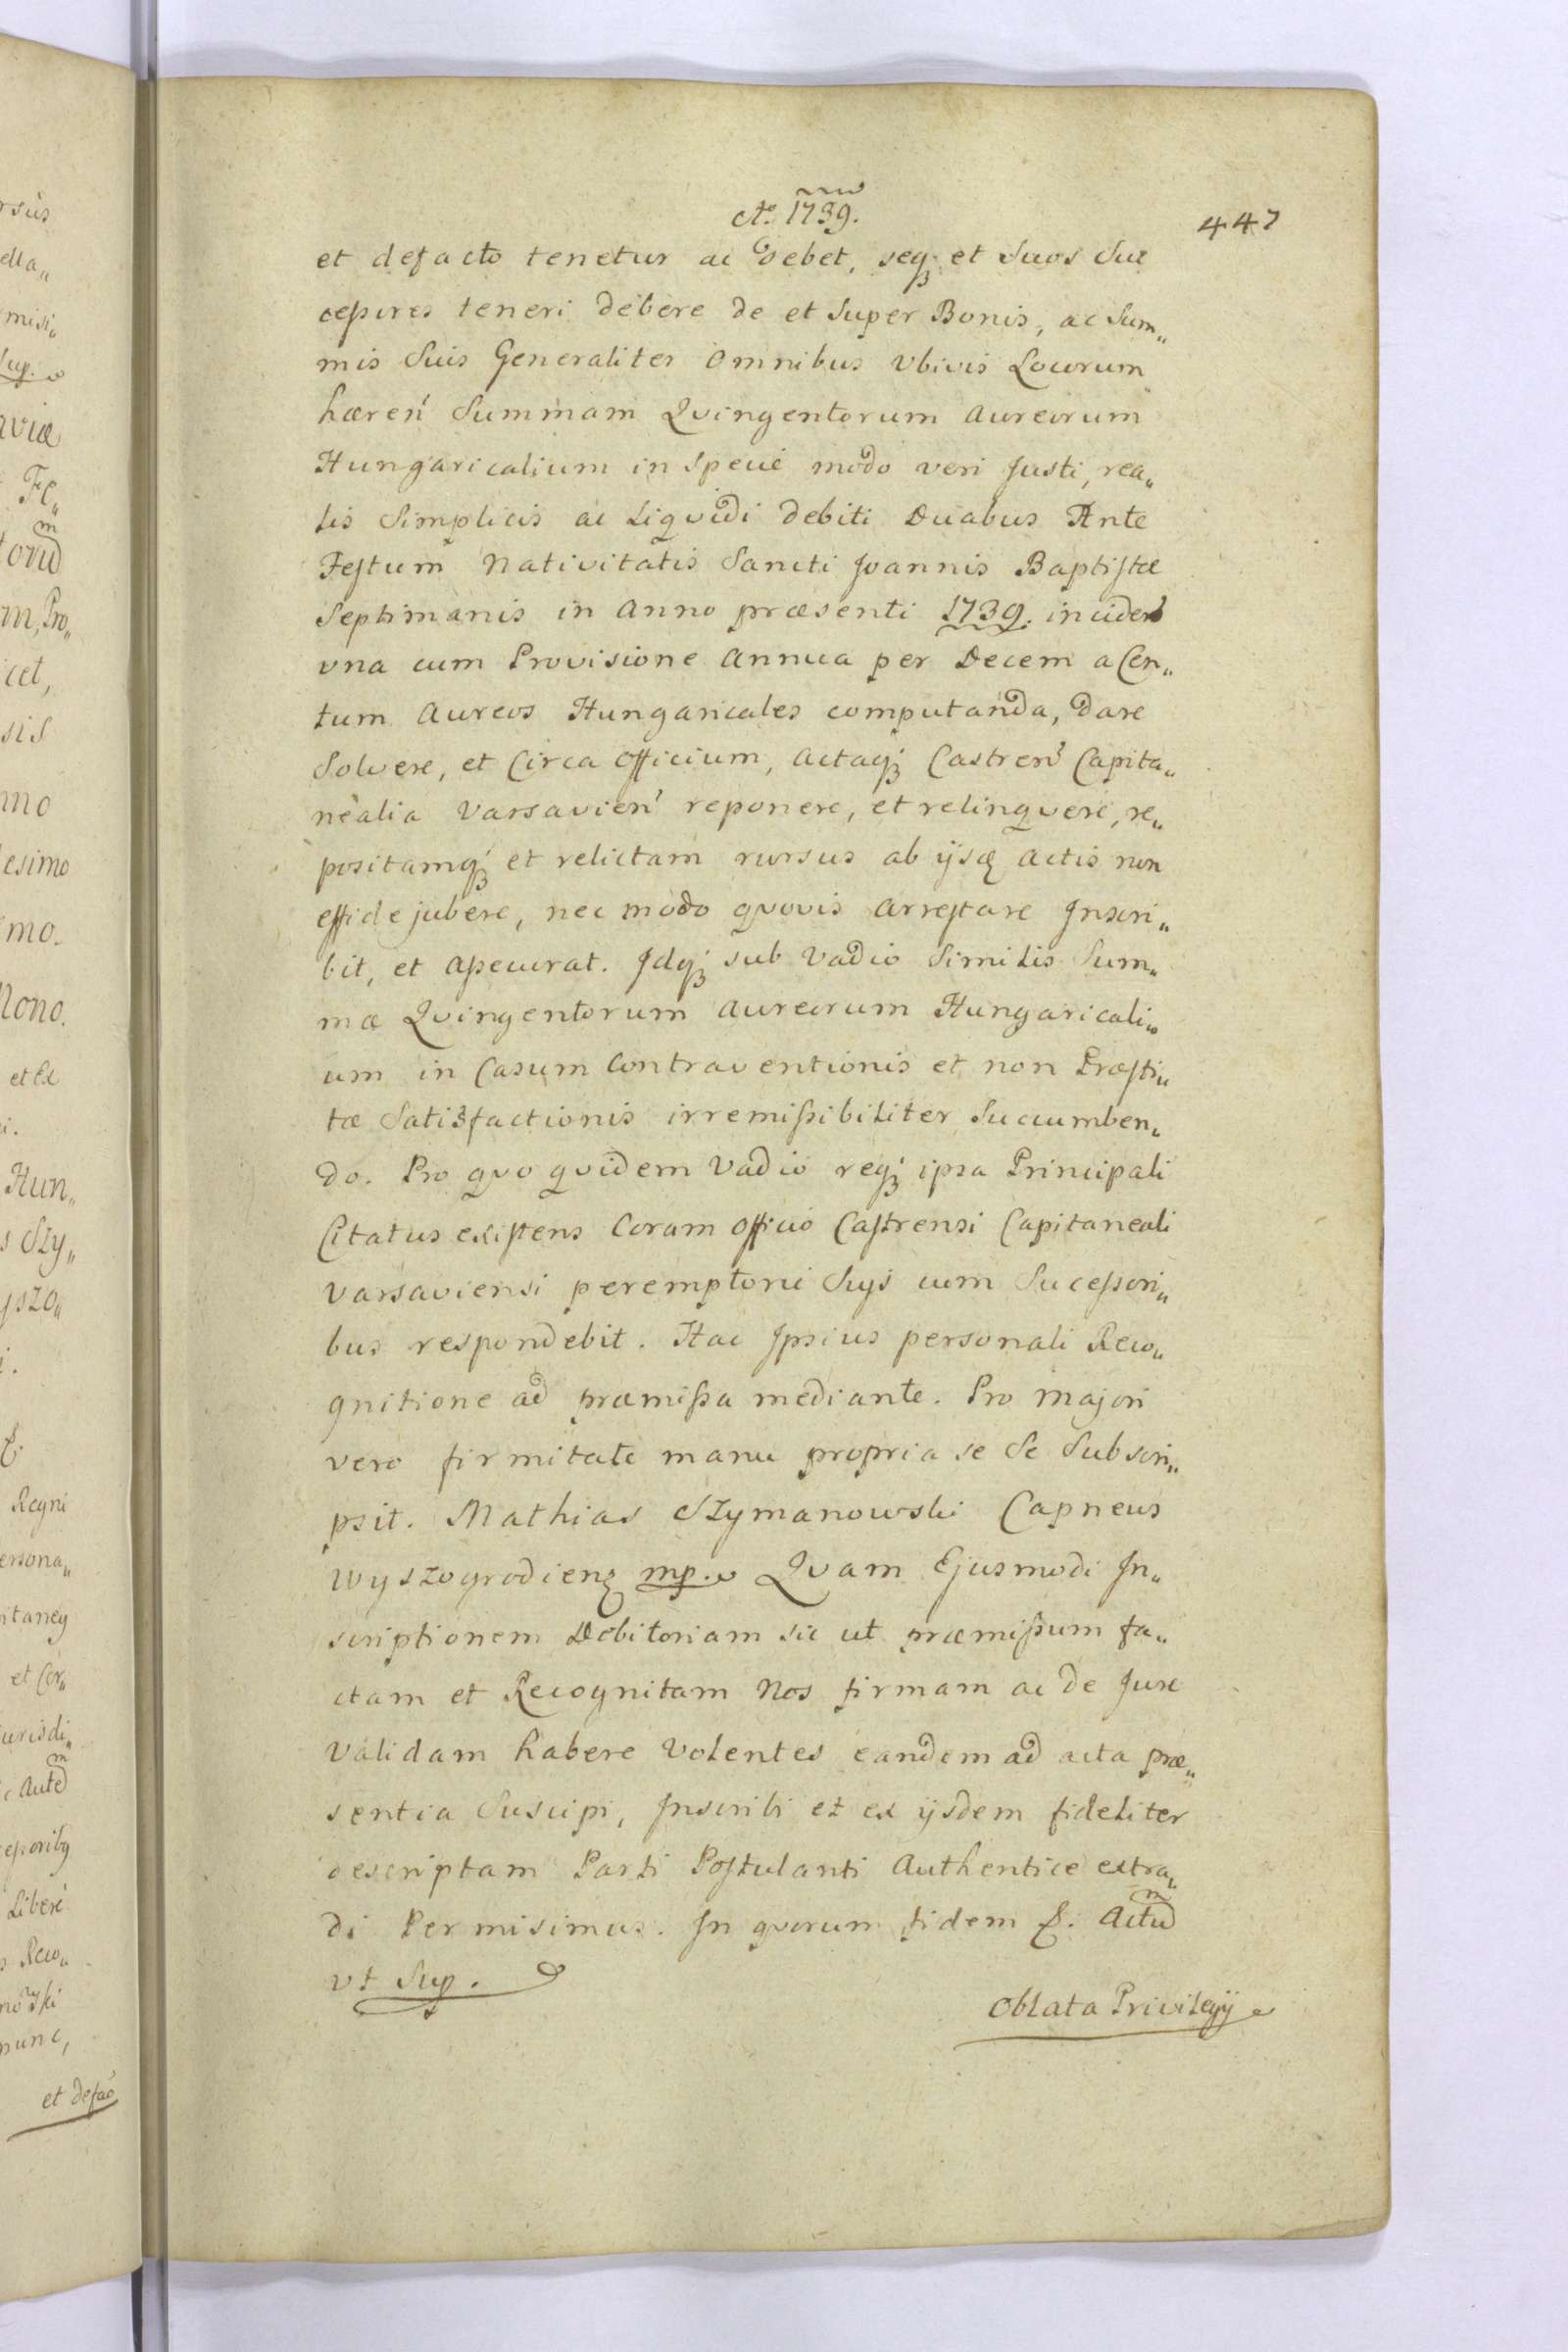 Ao. 1739.
447
et defacto tenetur ac debet, seq₃ et Suos Suc
cessores teneri debere de et Super Bonis, ac Sum„
mis Suis Generaliter Omnibus Vbivis Locorum
hæren̄ Summam Qvingentorum Aureorum
Hungaricalium in Specie modo veri Justi, rea„
lis Simplicis ac Liqvidi debiti Duabus Ante
Festum Nativitatis Sancti Joannis Baptistæ
Septimanis in Anno præsenti 1739. inciden̄
vna cum Provisione Annua per Decem a Cen„
tum Aureos Hungaricales computanda, Dare
Solvere, et Circa Officium, Actaq₃ Castren̄ Capita„
nealia Varsavien̄ reponere, et relinqvere, re„
positamq₃ et relictam rursus ab ijsq₃ Actis non
effidejubere, nec modo qvovis Arrestare Inscri„
bit, et Assecurat. Idq₃ sub Vadio Similis Sum„
mæ Qvingentorum Aureorum Hungaricali„
um in Casum Contraventionis et non Præsti„
tæ Satisfactionis irremissibiliter Succumben„
do. Pro qvo qvidem Vadio req₃ ipsa Principali
Citatus existens Coram Officio Castrensi Capitaneali
Varsaviensi peremptorie Suis cum Sucessori„
bus respondebit. Hac Ipsius personali Reco„
gnitione ad præmissa mediante. Pro Majori
vero firmitate manu propria se Se Subscri„
psit. Mathias Szymanowski Capneus
Wyszogrodien₃ mp. Qvam Ejusmodi In„
scriptionem Debitoriam sic ut præmissum fa„
ctam et Recognitam Nos firmam ac de Jure
Validam habere Volentes eandem ad acta præ„
sentia Suscipi, Inscribi et ex ijsdem fideliter
descriptam Parti Postulanti Authentice extra„
di Permisimus. In qvorum fidem &. Actum
vt Sup.
Oblata Privilegij